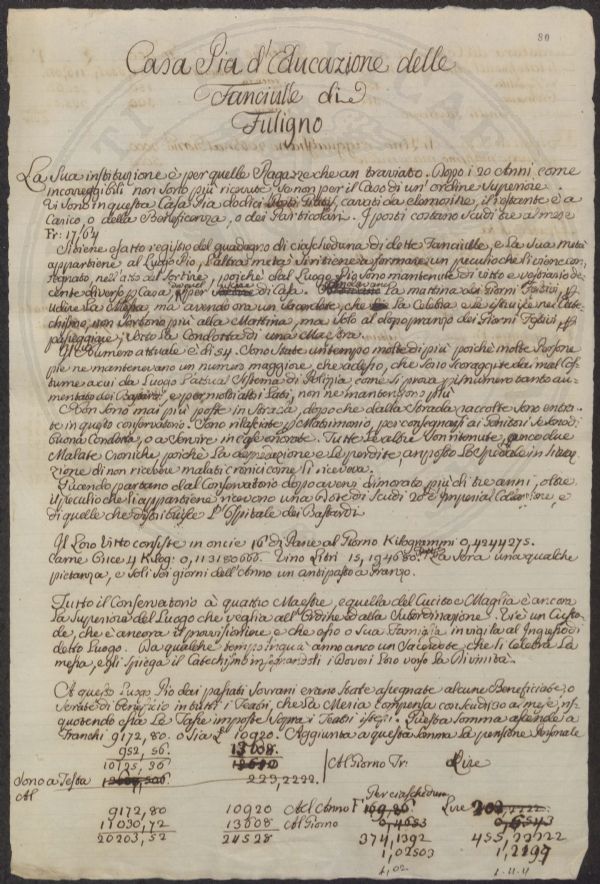 80
Casa Pia d'Educazione delle
Fanciulle di
Fuligno
La Sua instituzione è per quelle Ragazze che an traviato. Dopo i 20 Anni come
incorreggibili non sono più ricevute, se non per il Caso di un' ordine Superiore.
Vi sono in questa Casa Pia dodici Posti Gratis, cavati da elemosine, il restante è a
Carico, o della Beneficenza, o dei Particolari. I posti costano Scudi tre al mese
Fr: 17,64
Si tiene esatto registro del guadagno di ciascheduna di dette Fanciulle, e la Sua metà
appartiene al Luogo Pio, l'altra metà Serve a formare un peculio che li viene con-
segnato, nell'atto del Sortire, poichè dal Luogo Pio sono mantenute di vitto e vestiario de-
cente diverso p Casa, per di Casa. La mattina dei Giorni Festivi, p
udire la Messa, ma avendo ora un Sacerdote, che la Celebra e le istruisce nel Cate-
chismo, non Sortono più alla Mattina, ma Solo al dopo pranzo dei Giorni Festivi, p
passeggiare, Sotto la Condotta di una Maestra.
Il Numero attuale è di 54. Sono State un tempo molte di più poichè molte Persone
pie ne mantenevano un numero maggiore, che adesso, che Sono Scoraggite dal mal Cos-
tume a cui dà Luogo l'attual Sistema di Polizia come si prova pel numero tanto au-
mentato dei Bastardi e per molti altri Lati, non ne mantengono più
Non Sono mai più poste in Strada, dopo che dalla Strada raccolte Sono entra-
te in questo conservatorio. Sono rilasciate p Matrimonio, per consegnarsi ai Genitori se Sono di
buona Condotta, o a Servire in Case onorate. Tutte le altre Son ritenute, anco due
Malate Croniche poichè la depressione e le perdite, an posto Lo Spedale in Situa-
zione di non ricevere malati cronici come li riceveva.
Quando partano dal Conservatorio dopo avervi dimorato più di tre anni, oltre
il peculio che li appartiene ricevono una Dote di Scudi 20
di quelle che distribuisce l'Ospitale dei Bastardi
Il Loro Vitto consiste in oncie 16 di Pane al Giorno Kilogrammi 0,4244275.
Carne Once 4 Kilog: 0,113180666. Vino Litri 15,194680. La Sera una qualche
pietanza, e Soli Sei giorni dell'Anno un antipasto a Pranzo.
Tutto il Conservatorio à quattro Maestre, e quella del Cucito e Maglia è ancora
la Superiora del Luogo che veglia all'Ordine e alla Subordinazione. Vi è un Custo-
de, che è ancora il provisioniere e che esso o Sua Famiglia invigila al Ingresso di
detto Luogo. Da qualche tempo in quà anno anco un Sacerdote, che li Celebra La
messa, e gli Spiega il Catechismo insegnandoli i Doveri Loro verso la Divinità.
A questo Luogo Pio dai passati Sovrani erano State assegnate alcune Beneficiate, o
Serate di beneficio in tutti i Teatri, che la Meria Compensa con Scudi 130 al mese, ris-
quotendo essa Le Tasse imposte Sopra i Teatri istessi. Questa Somma ascende a
Franchi 9172,80. o Sia L. 10920. Aggiunta a questa Somma la pensione Personale
952,56. 13608.
10125,36 Al Giorno Fr: Lire
Sono a Testa 229,2222.
Al
Per ciascheduna
9172,80 10920 Al Anno F Lire
11030,72 13608 Al Giorno 0,4653 0,6543
20203,52 24528 374,1392 455,22222
1,02503 1,2497
1,02